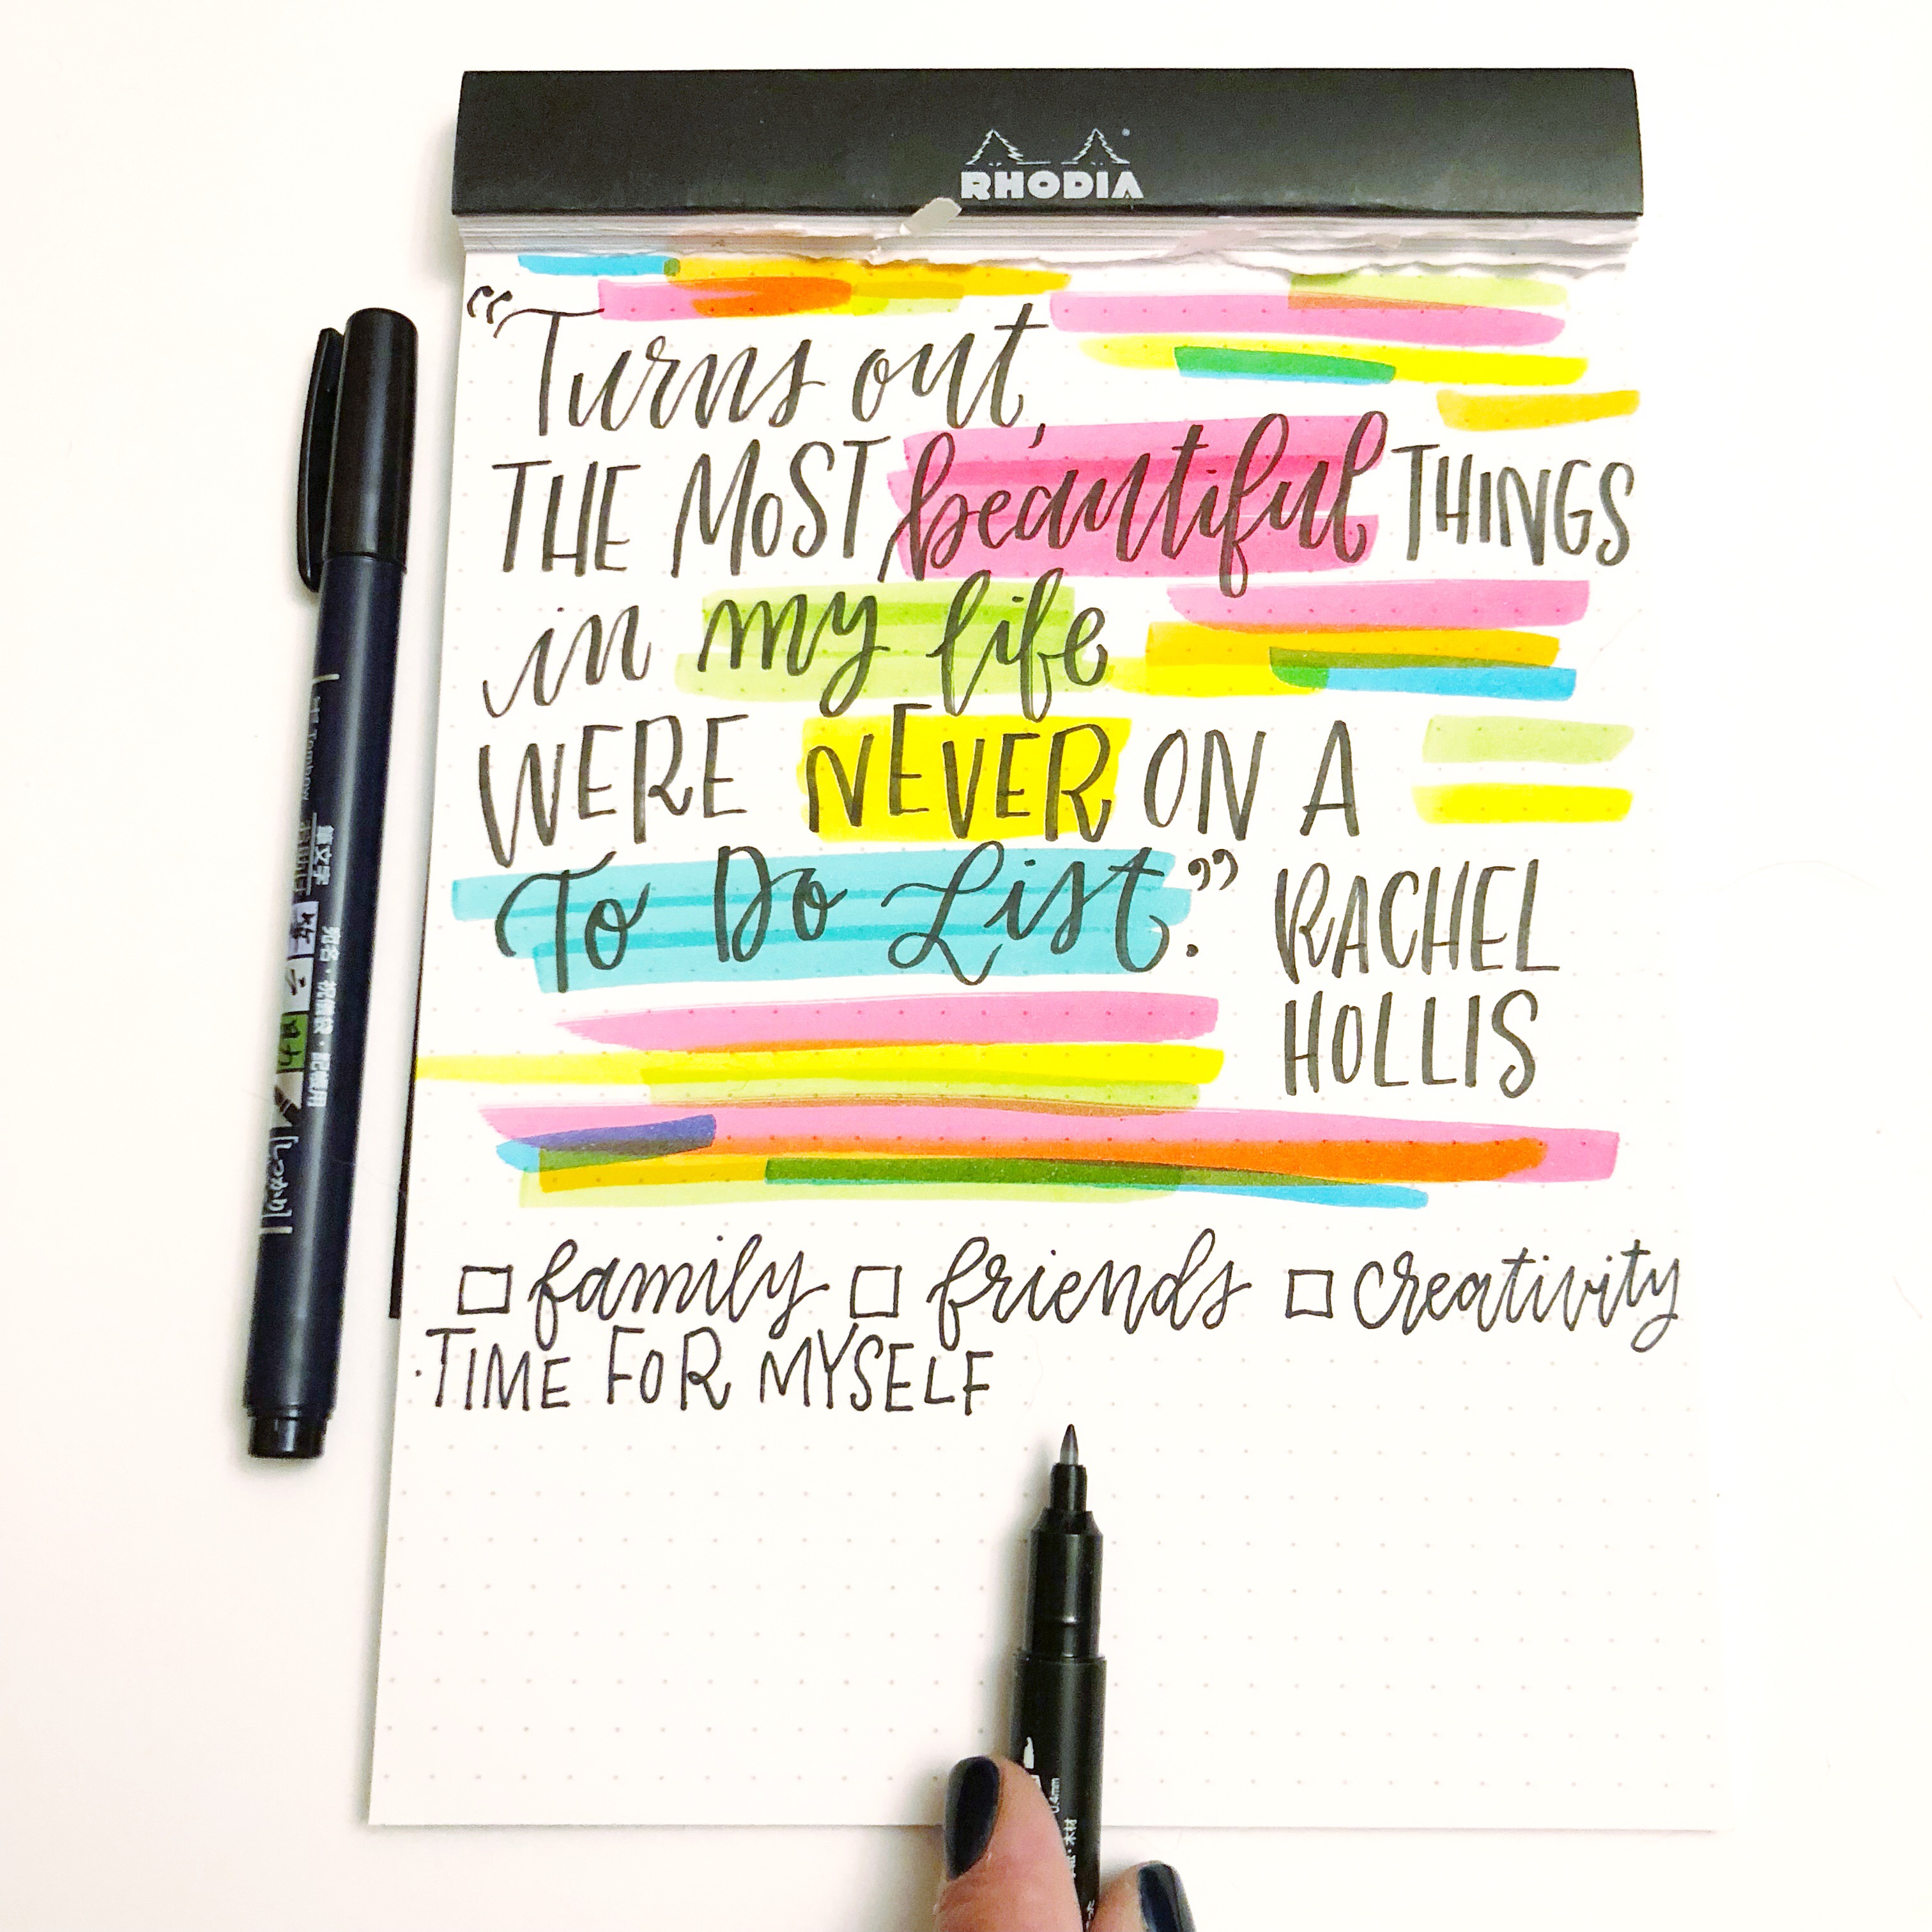 RHODIA
“Turns out,
THE MOST beautiful THINGS
in my life
WERE NEVER ON A
To Do List.” RACHEL
HOLLIS
☐ family ☐ friends ☐ creativity
·TIME FOR MYSELF
Tombow
筆文字
宛名・祝儀袋・記帳用
0.4mm
木材